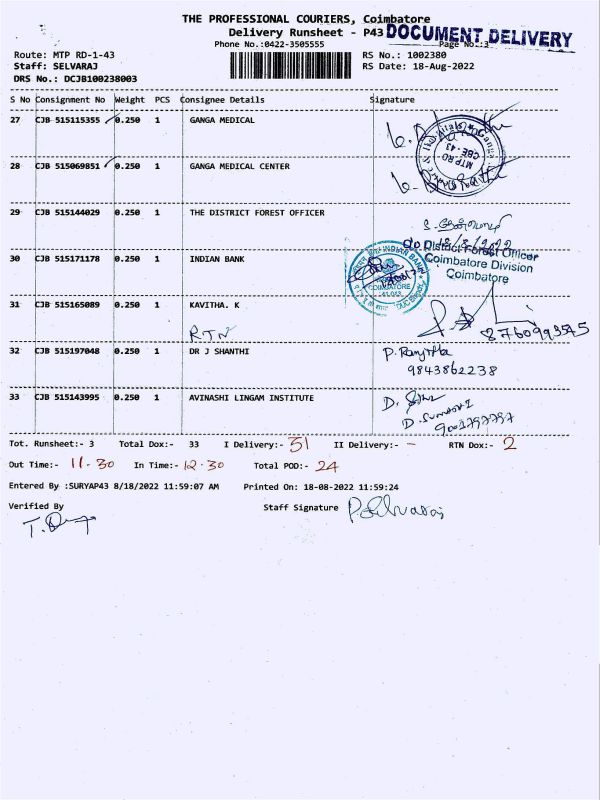 THE PROFESSIONAL COURIERS, Coimbatore
Delivery Runsheet - P43
DOCUMENT DELIVERY
Phone No.:0422-3505555
Page No.:3
Route: MTP RD-1-43
RS No.: 1002380
Staff: SELVARAJ
RS Date: 18-Aug-2022
DRS No.: DCJB100238003
S No Consignment No Weight PCS Consignee Details Signature
27 CJB 515115355 0.250 1 GANGA MEDICAL
MTP RD
CBE - 43
28 CJB 515069851 0.250 1 GANGA MEDICAL CENTER
29 CJB 515144029 0.250 1 THE DISTRICT FOREST OFFICER
o/o District Forest Officer
Coimbatore Division
Coimbatore
30 CJB 515171178 0.250 1 INDIAN BANK
INDIAN BANK
COIMBATORE
31 CJB 515165089 0.250 1 KAVITHA. K
RTN
8760993545
32 CJB 515197048 0.250 1 DR J SHANTHI
P. Ranjitha
9843862238
33 CJB 515143995 0.250 1 AVINASHI LINGAM INSTITUTE
Tot. Runsheet:- 3 Total Dox:- 33 I Delivery:- 31 II Delivery:- - RTN Dox:- 2
Out Time:- 11.30 In Time:- 12.30 Total POD:- 24
Entered By :SURYAP43 8/18/2022 11:59:07 AM Printed On: 18-08-2022 11:59:24
Verified By Staff Signature